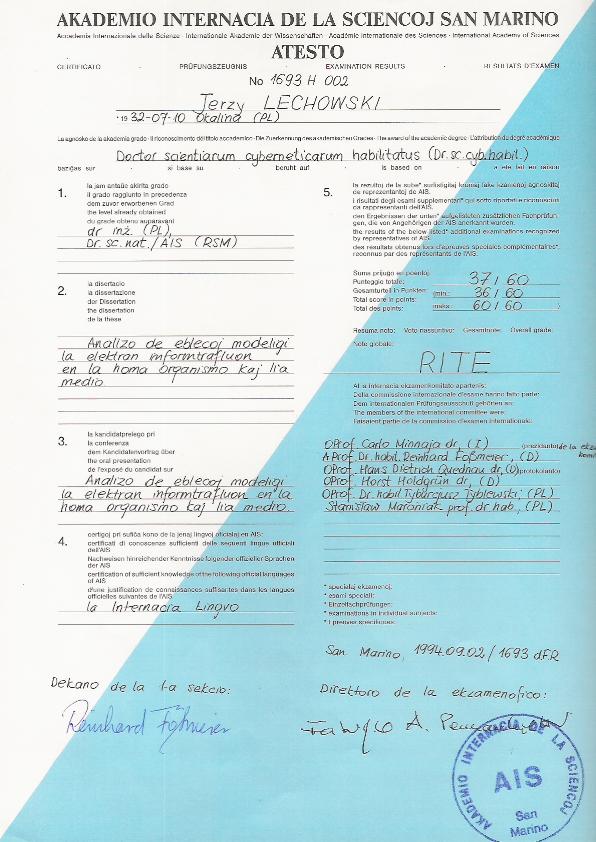 AKADEMIO INTERNACIA DE LA SCIENCOJ SAN MARINO
Accademia Internazionale delle Scienze · Internationale Akademie der Wissenschaften · Académie Internationale des Sciences · International Academy of Sciences
ATESTO
CERTIFICATO · PRÜFUNGSZEUGNIS · EXAMINATION RESULTS · RESULTATS D'EXAMEN
No 1693 H 002
Jerzy LECHOWSKI
*1932-07-10 Okalina (PL)
La agnosko de la akademia grado · Il riconoscimento del titolo accademico · Die Zuerkennung des akademischen Grades · The award of the academic degree · L'attribution du degré académique
Doctor scientiarum cyberneticarum habilitatus (Dr.sc.cyb.habil.)
baziĝas sur · si base su · beruht auf · is based on · a été fait en raison
1.
la jam antaŭe akirita grado
il grado raggiunto in precedenza
dem zuvor erworbenen Grad
the level already obtained
du grade obtenu auparavant
dr inż. (PL),
Dr.sc.nat./AIS (RSM)
2.
la disertacio
la dissertazione
der Dissertation
the dissertation
de la thèse
Analizo de eblecoj modeligi
la elektran informtrafluon
en la homa organismo kaj lia
medio
3.
la kandidatprelego pri
la conferenza
dem Kandidatenvortrag über
the oral presentation
de l'exposé du candidat sur
Analizo de eblecoj modeligi
la elektran informtrafluon en la
homa organismo kaj lia medio.
4.
certigoj pri sufiĉa kono de la jenaj lingvoj oficialaj en AIS:
certificati di conoscenze sufficienti delle seguenti lingue ufficiali
dell'AIS
Nachweisen hinreichender Kenntnisse folgender offizieller Sprachen
der AIS
certification of sufficient knowledge of the following official languages
of AIS
d'une justification de connaissances suffisantes dans les langues
officielles suivantes de l'AIS
la Internacia Lingvo
5.
la rezultoj de la sube*
agnoskitaj
de reprezentantoj de AIS.
i risultati degli esami supplementari* qui sotto riportati e riconosciuti
da rappresentanti dell'AIS.
den Ergebnissen der unten* aufgelisteten zusätzlichen Fachprüfun-
gen, die von Angehörigen der AIS anerkannt wurden.
the results of the below listed* additional examinations recognized
by representatives of AIS.
des résultats obtenus lors d'épreuves spéciales complémentaires*,
reconnus par des représentants de l'AIS.
Suma prijuĝo en poentoj:
Punteggio totale: 37/60
Gesamturteil in Punkten: (min.: 36/60
Total score in points:
Total des points: maks.: 60/60
Resuma noto: · Voto riassuntivo: · Gesamtnote: · Overall grade:
Note globale:
RITE
Al la internacia ekzamenkomitato apartenis:
Della commissione internazionale d'esame hanno fatto parte:
Dem internationalen Prüfungsausschuß gehörten an:
The members of the international committee were:
Faisaient partie de la commission d'examen internationale:
OProf. Carlo Minnaja dr, (I) (prezidanto de la ekz.
AProf. Dr. habil. Reinhard Foßmeier, (D)
OProf. Hans Dietrich Quednau dr, (D) protokolanto
OProf. Horst Holdgrün dr, (D)
OProf. Dr. habil. Tyburcjusz Tyblewski, (PL)
Stanisław prof. dr hab., (PL)
* specialaj ekzamenoj:
* esami speciali:
* Einzelfachprüfungen:
* examinations in individual subjects:
* épreuves spécifiques:
San Marino, 1994.09.02/1693 dFR
Dekano de la 1-a sekcio:
Reinhard Fößmeier
Direktoro de la ekzamenofico:
AKADEMIO INTERNACIA DE LA SCIENCOJ
AIS
San
Marino